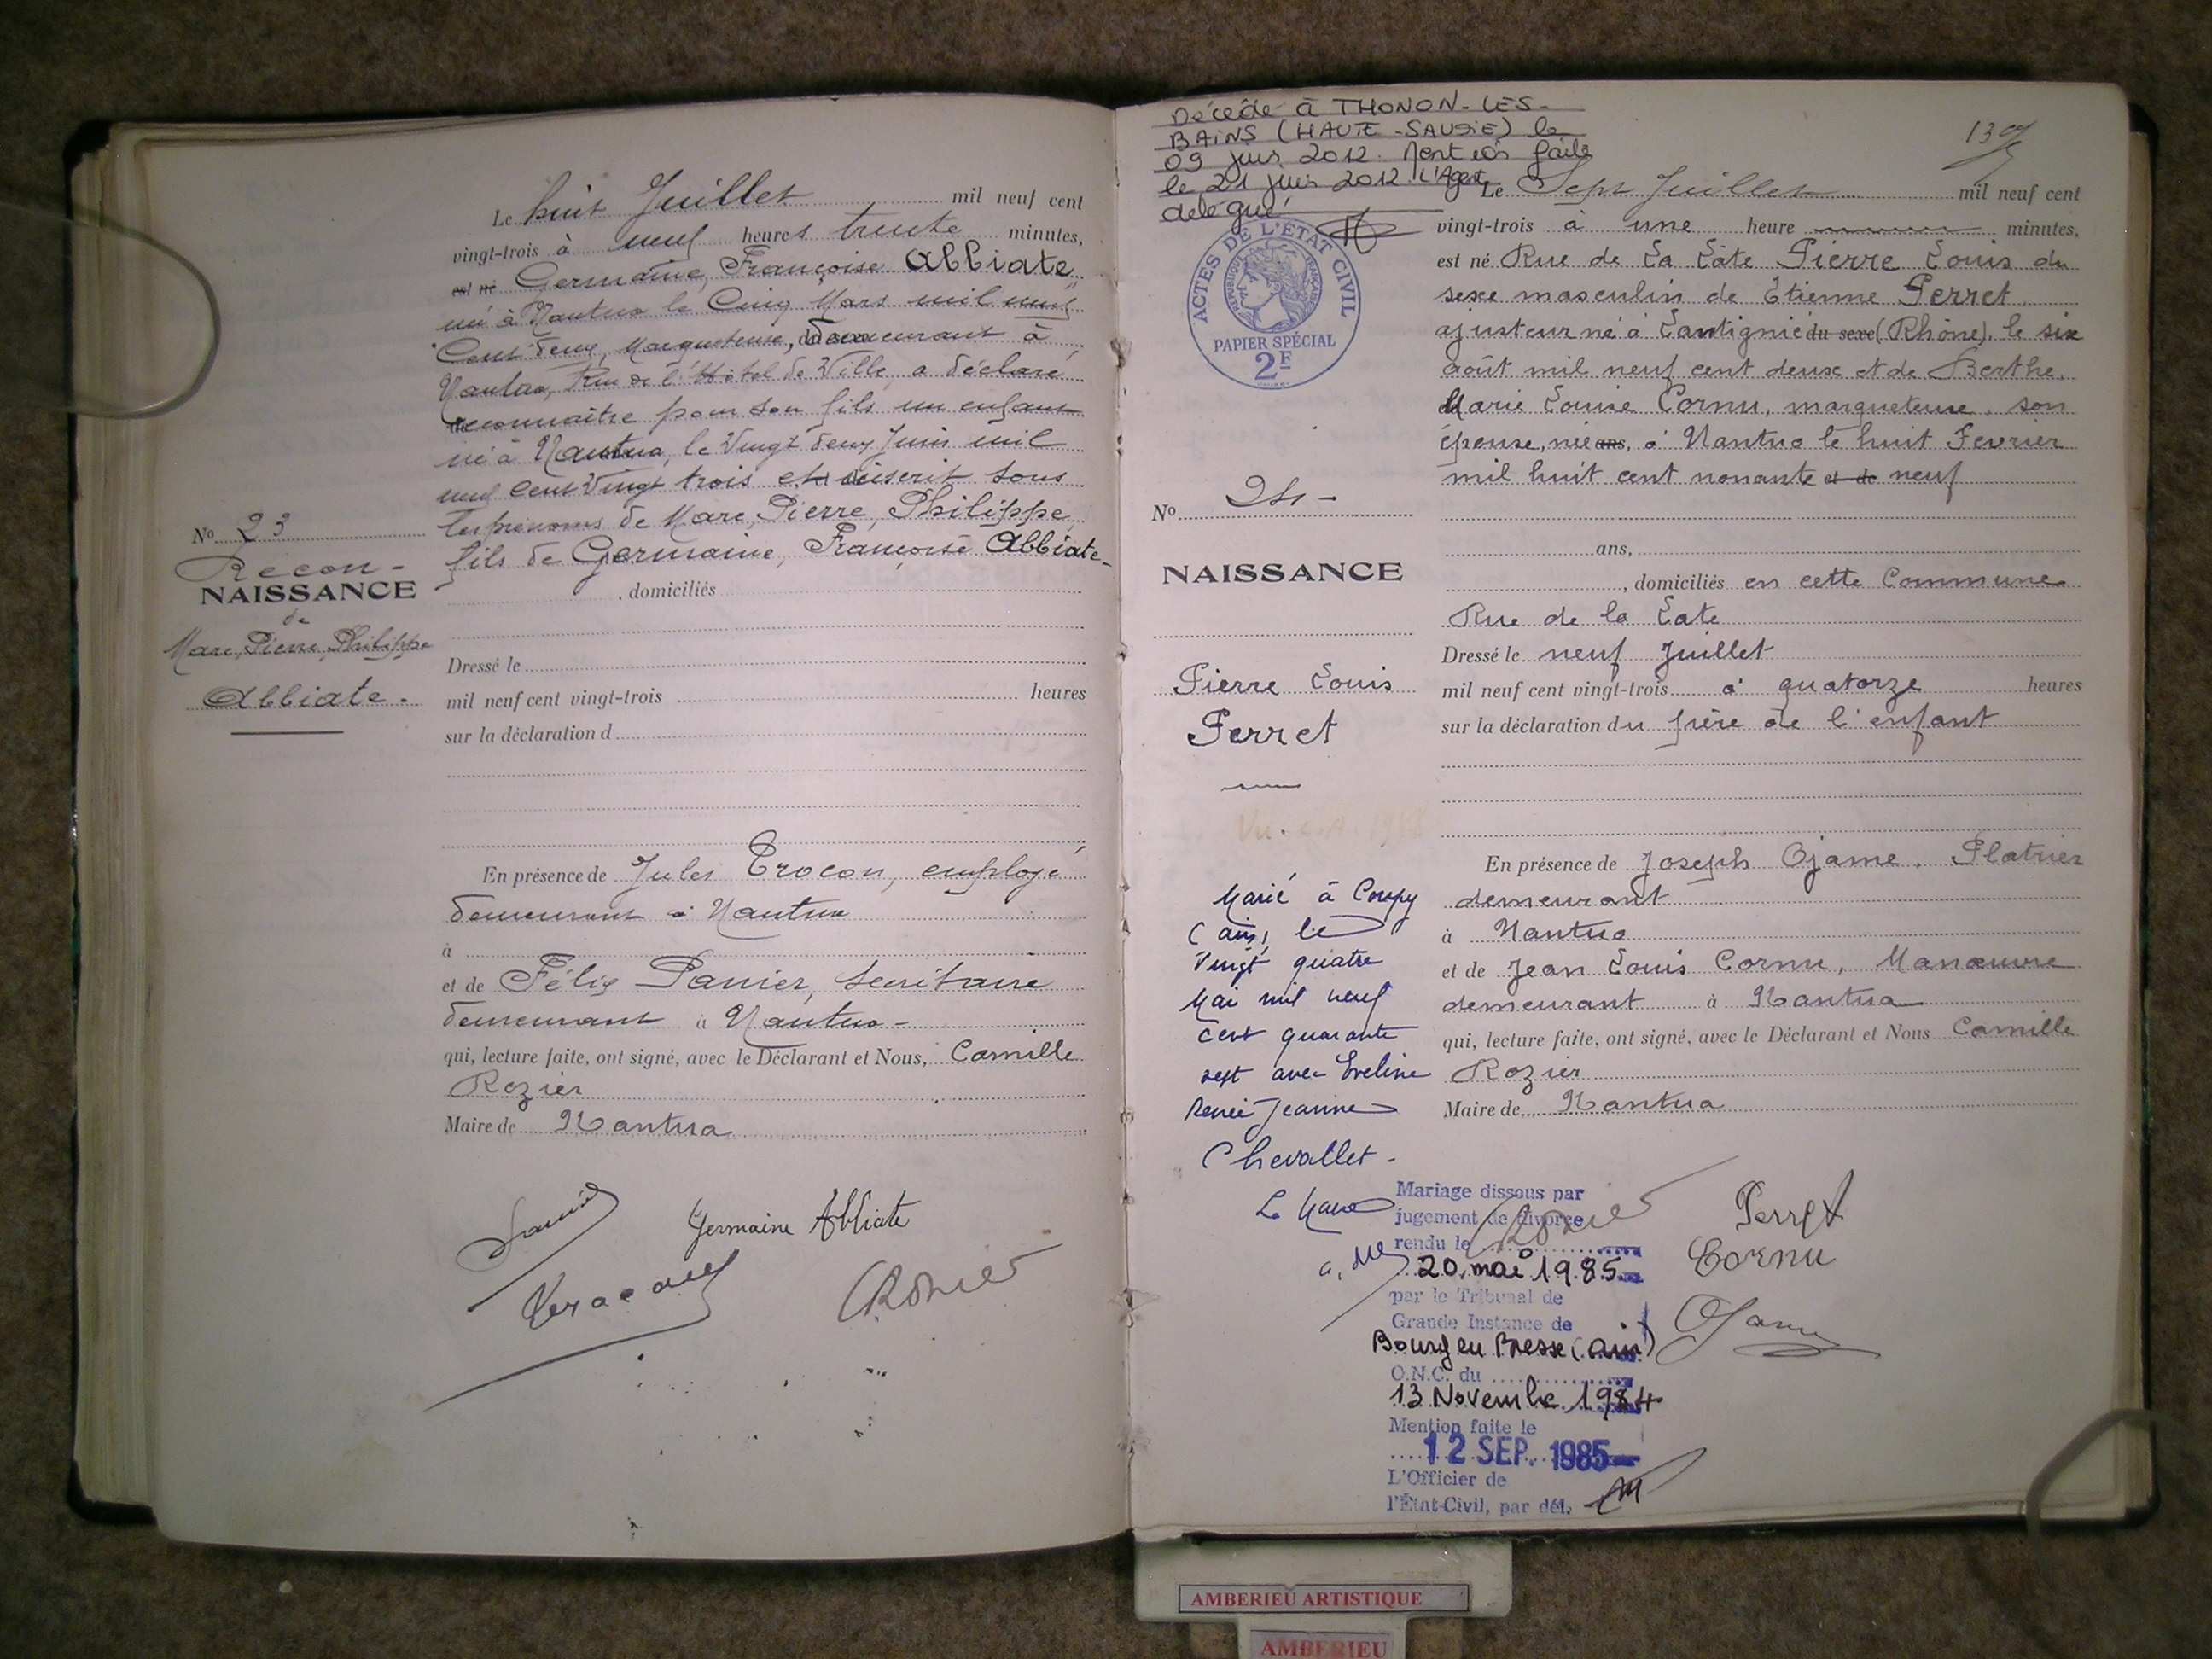 Le huit Juillet mil neuf cent
vingt-trois à neuf heures trente minutes,
est né Germaine, Françoise Abbiate
né à Nantua le Cinq Mars mil neuf
Cent deux, Marqueteuse, demeurant à
Nantua, Rue de l'Hôtel de Ville, a déclaré
reconnaître pour son fils un enfant
né à Nantua, le Vingt deux Juin mil
neuf Cent Vingt trois et inscrit sous
les prénoms de Marc, Pierre, Philippe,
fils de Germaine, Françoise Abbiate-
, domiciliés
No 23
Recon-
NAISSANCE
de
Marc, Pierre, Philippe
Abbiate.
Dressé le
mil neuf cent vingt-trois heures
sur la déclaration d
En présence de Jules Trocon, employé
demeurant à Nantua
à
et de Félix Panier, Secrétaire
demeurant à Nantua-
qui, lecture faite, ont signé, avec le Déclarant et Nous, Camille
Rozier
Maire de Nantua
Germaine Abbiate
CRozier
Décédé à THONON-LES-
BAINS (HAUTE-SAVOIE) le
09 juin 2012. Mention faite
le 21 juin 2012. L'Agent
délégué
ACTES DE L'ÉTAT CIVIL
RÉPUBLIQUE FRANÇAISE
PAPIER SPÉCIAL
2F
Le Sept Juillet mil neuf cent
vingt-trois à une heure minutes,
est né Rue de La Late Pierre Louis du
sexe masculin de Etienne Perret
ajusteur né à Lantignié du sexe (Rhône), le six
août mil neuf cent deux et de Berthe,
Marie Louise Cornu, marqueteuse, son
épouse, née ans, à Nantua le huit Février
mil huit cent nonante et de neuf
ans,
, domiciliés en cette Commune
Rue de la Late
No 24-
NAISSANCE
Pierre Louis
Perret
Dressé le neuf Juillet
mil neuf cent vingt-trois à quatorze heures
sur la déclaration du père de l'enfant
En présence de Joseph Ojame, Platrier
demeurant
à Nantua
et de Jean Louis Cornu, Manœuvre
demeurant à Nantua
qui, lecture faite, ont signé, avec le Déclarant et Nous Camille
Rozier
Maire de Nantua
Marié à Coupy
(Ain) le
Vingt quatre
Mai mil neuf
cent quarante
sept avec Eveline
Renée Jeanne
Chevallet-
Le Maire
Mariage dissous par
jugement de divorce
rendu le
20 mai 1985
par le Tribunal de
Grande Instance de
Bourg en Bresse (Ain)
O.N.C. du
13 Novembre 1984
Mention faite le
12 SEP. 1985
L'Officier de
l'État-Civil, par dél.
CRozier
Perret
Cornu
Ojame
AMBERIEU ARTISTIQUE
AMBERIEU